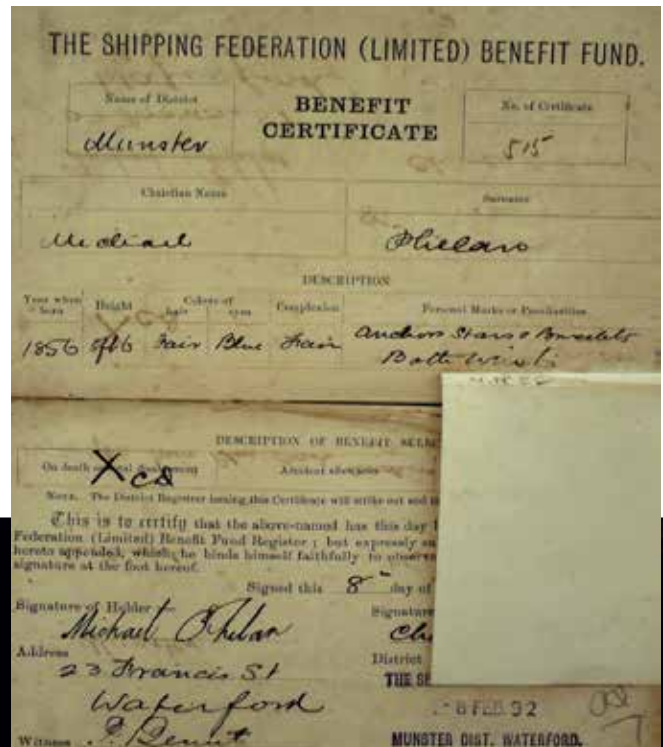 THE SHIPPING FEDERATION (LIMITED) BENEFIT FUND.
Name of District
BENEFIT
No. of Certificate
CERTIFICATE
Munster
515
Christian Name
Surname
Michael
Phelan
DESCRIPTION
Year when born
Height
Colour of
hair
eyes
Complexion
Personal Marks or Peculiarities
1856 5ft6 Fair Blue Fair Anchors Stars & Bracelets
Both Wrists
DESCRIPTION OF BENEFIT
On death
Accident allowance
NOTE. The District Registrar issuing this Certificate will strike out and
This is to certify that the above-named has this day
Federation (Limited) Benefit Fund Register; but expressly
hereto appended, which he binds himself faithfully to observe
signature at the foot hereof.
Signed this 8 day of
Signature of Holder
Signature
Michael Phelan
Address
District
23 Francis St
Waterford
8 FEB. 92
Witness
MUNSTER DIST. WATERFORD.